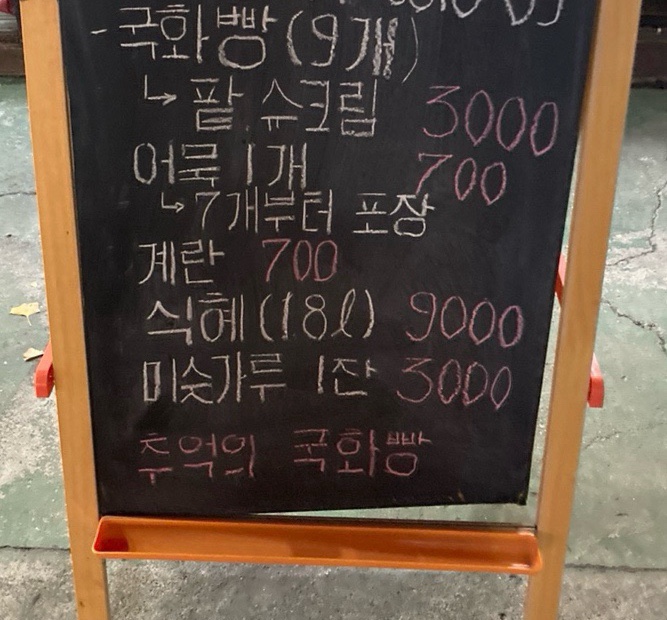 -국화빵(9개)
↳팥 슈크림 3000
어묵 1개 700
↳7개부터 포장
계란 700
식혜(1.8l) 9000
미숫가루 1잔 3000
추억의 국화빵